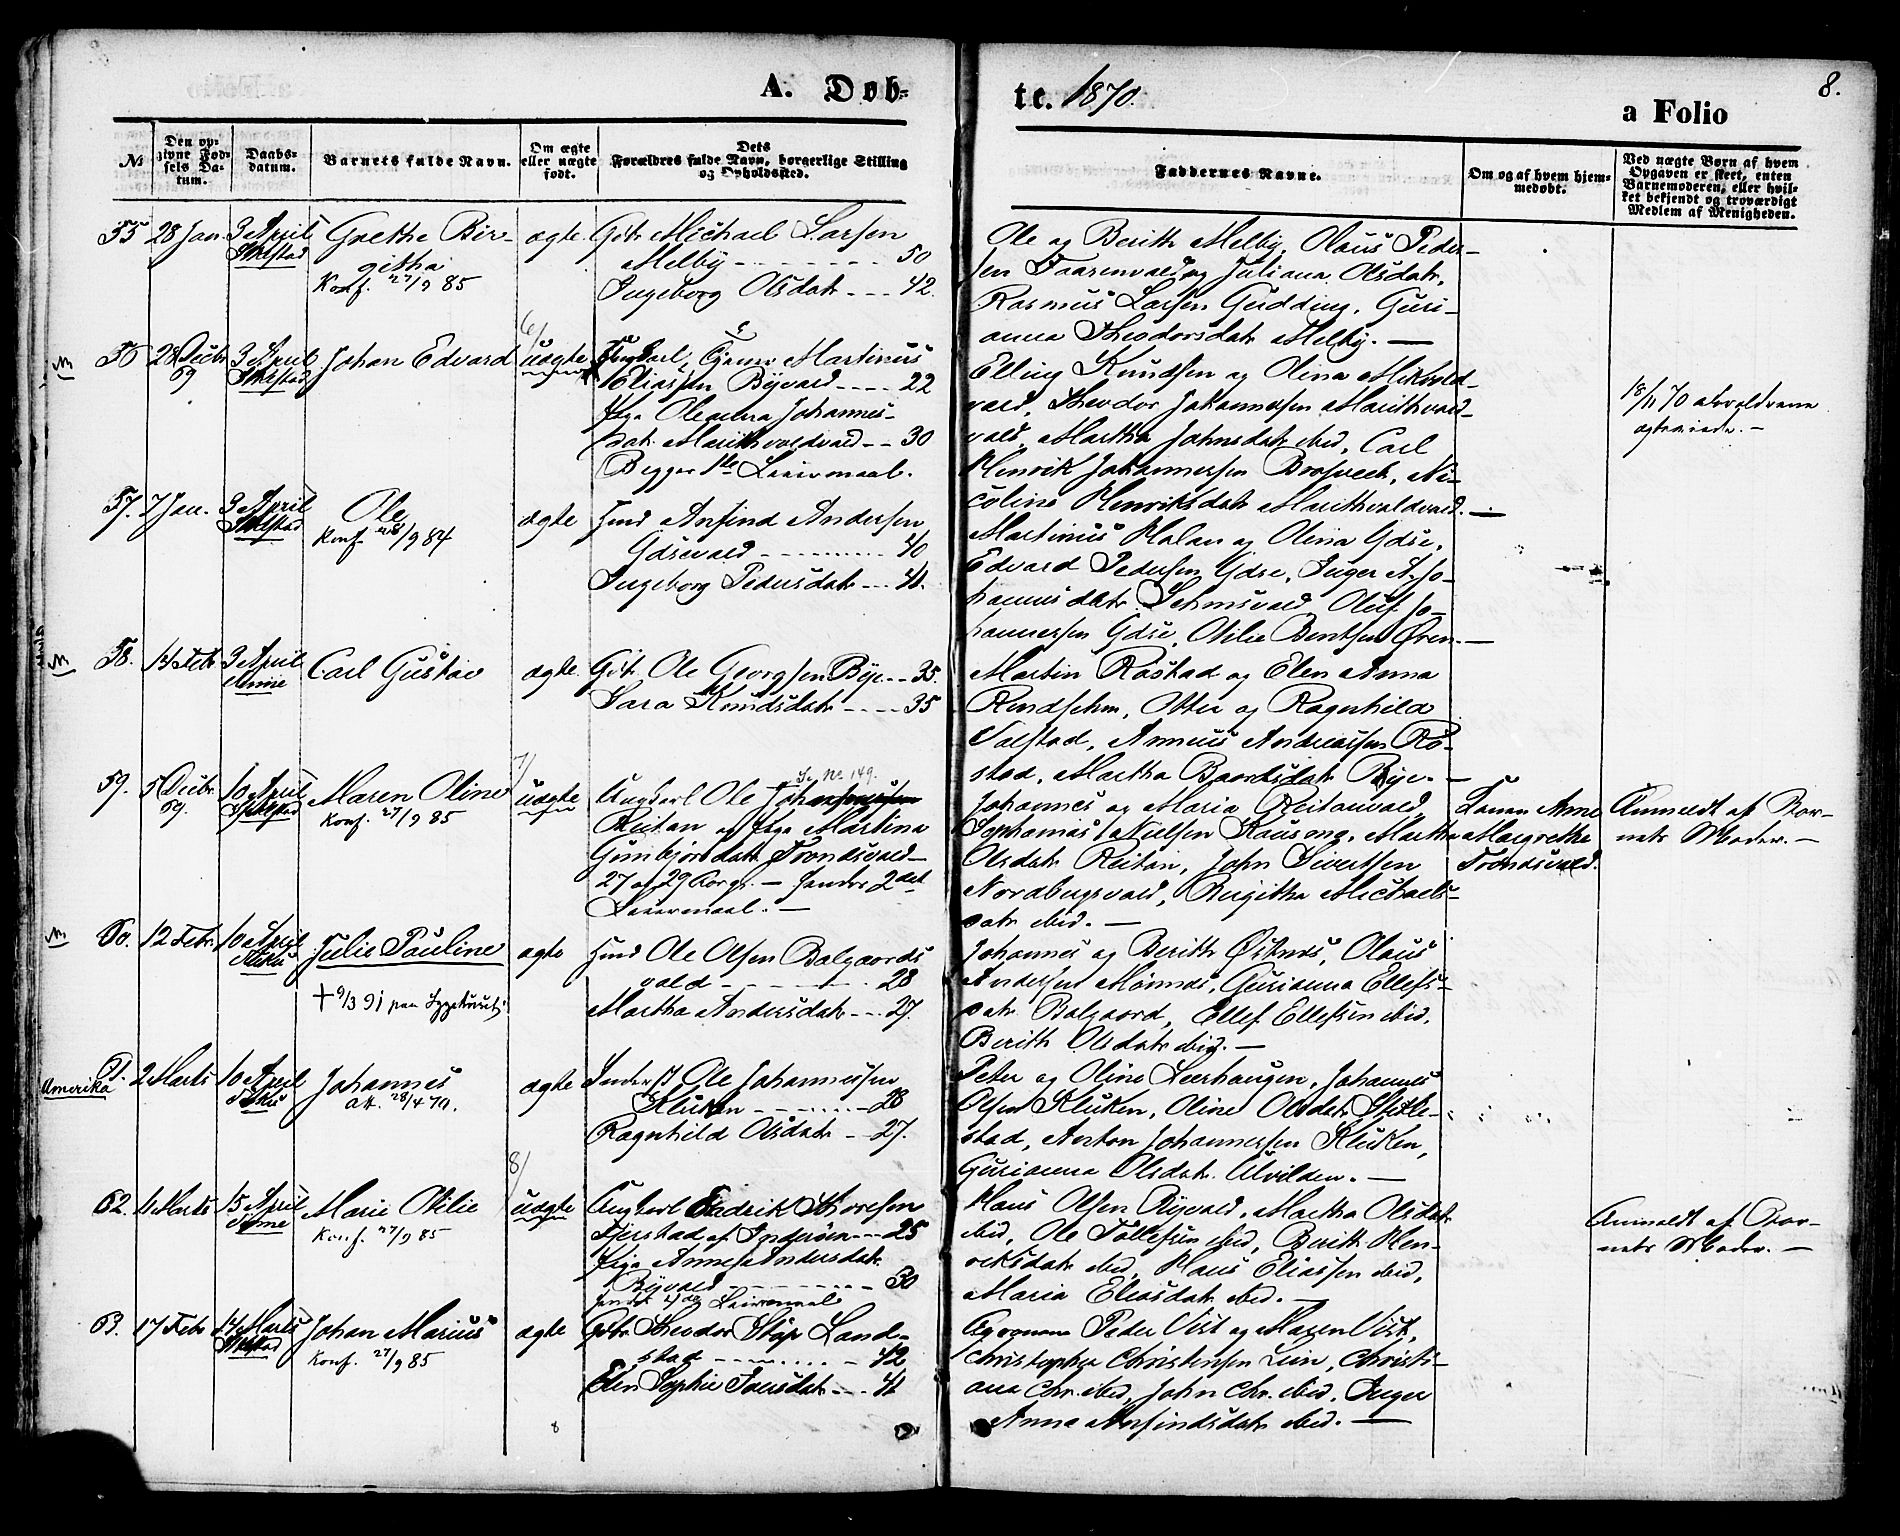 A. Døb-
te. 1870.
8.
a Folio
№
Den op-
givne Fød-
sels Da-
tum.
Daabs-
datum.
Barnets fulde Navn.
Om ægte
eller uægte
født.
Dets
Forældres fulde Navn, borgerlige Stilling
og Opholdssted.
Faddernes Navne.
Om og af hvem hjem-
medøbt.
Ved uægte Børn af hvem
Opgaven er skeet, enten
Barnemoderen, eller hvil-
ket bekjendt og troværdigt
Medlem af Menigheden.
55
28 Jan.
3 April
Grethe Bir-
githa
Konf. 27/9 85
ægte.
Gbr. Michael Larsen
Melby 50
Ingeborg Olsdatr 42.
Ole og Berith Melby, Olaus Peder-
sen Faarenvald og Juliana Olsdatr,
Rasmus Larsen Gudding, Guri-
anna Theodorsdatr Melby.
56
28 Decbr
69
3 April
Johan Edvard
6/
uægte
Ungkarl Martinus
Eliassen Byvald 22
Pige Oleanna Johannes-
datr Marithvoldvald 30
Begges 1ste Leiermaal.
Elling Knudsen og Olina Mikvold-
vald, Theodor Johannessen Marithvold-
vald, Martha Johnsdatr ibid, Carl
Henrik Johannessen Brosveet, Ni-
coline Henriksdatr Marithvoldvald.
18/11 70
57.
7 Jan.
3 April
Ole
Konf. 28/9 84
ægte
Hmd Anfind Andersen
Ydsevald 40
Ingeborg Pedersdatr 41.
Martinus Halan og Olina Ydse,
Edvard Pedersen Ydse, Inger A. Jo-
hannesdatr Sehmsvald, Oluf Jo-
hannessen Ydse, Otilie Bentsen Øren.
58.
14 Febr
3 April
Carl Gustav
ægte.
Gbr. Ole Georgsen Bye 35.
Sara Knudsdatr 35
Martin Røstad og Elen Anna
Rindsehm, Otter og Ragnhild
Salstad, Anneus Andreassen Rø-
stad, Martha Baardsdatr Bye.
59.
5 Decbr
69.
10 April
Maren Oline
Konf. 27/9 85
7/
uægte
Se No 149.
Ungkarl Ole Johannessen
Reitan og Pige Martina
Gunbjørsdatr Trondsvald
27 og 29 Aargl. – hendes 2det
Leiermaal.
Johannes og Maria Reitanvald,
Sephanias Nielsen Kausong, Martha
Olsdatr Reitan, John Sivertsen
Nordbergsvald, Birgitha Michaels-
datr ibid.
Konen Anne
Margrethe
Trondsvald.
Anmeldt af Bar-
nets Moder.
60.
12 Febr
10 April
Julie Pauline
+ 9/3 91 paa Sygehuset
ægte
Hmd Ole Olsen Balgaards
vald 28
Martha Andersdatr 27.
Johannes og Berith Østnes, Olaus
Andersen Mønnes, Gurianna Ellefs-
datr Balgaard, Ellef Ellefsen ibid,
Berith Olsdatr ibid.
Amerika
61.
2 Marts
10 April
Johannes
att. 28/4 70.
ægte
Inderst Ole Johannessen
Kluken 28
Ragnhild Olsdatr 27.
Peter og Oline Leerhaugen, Johannes
Olsen Kluken, Oline Olsdatr Stikle-
stad, Anton Johannessen Kluken,
Gurianna Olsdatr Ulvilden.
62.
4 Marts
15 April
Marie Otilie
Konf. 27/9 85
8/
uægte
Ungkarl Fredrik Thoresen
Fjerstad af Inderøen 25
Pige Anne Andersdatr
Byvald 30
hendes 2det Leiermaal
Hans Olsen Byvald, Martha Olsdatr
ibid, Ole Tollefsen ibid, Berith Hen-
riksdatr ibid, Hans Eliassen ibid,
Maria Eliasdatr ibid.
Anmeldt af Bar-
nets Moder.
63.
17 Febr
14 Marts
Johan Marius
Konf. 27/9 85
ægte
Gbr. Theodor Støp Land-
stad 42
Elen Sophie Iversdatr 41
Agronom Peder Vist og Maren Vist,
Christopher Christensen Lein, Christi-
ana Chr. ibid, John Chr. ibid, Inger
Anna Arnfindsdatr ibid.
8